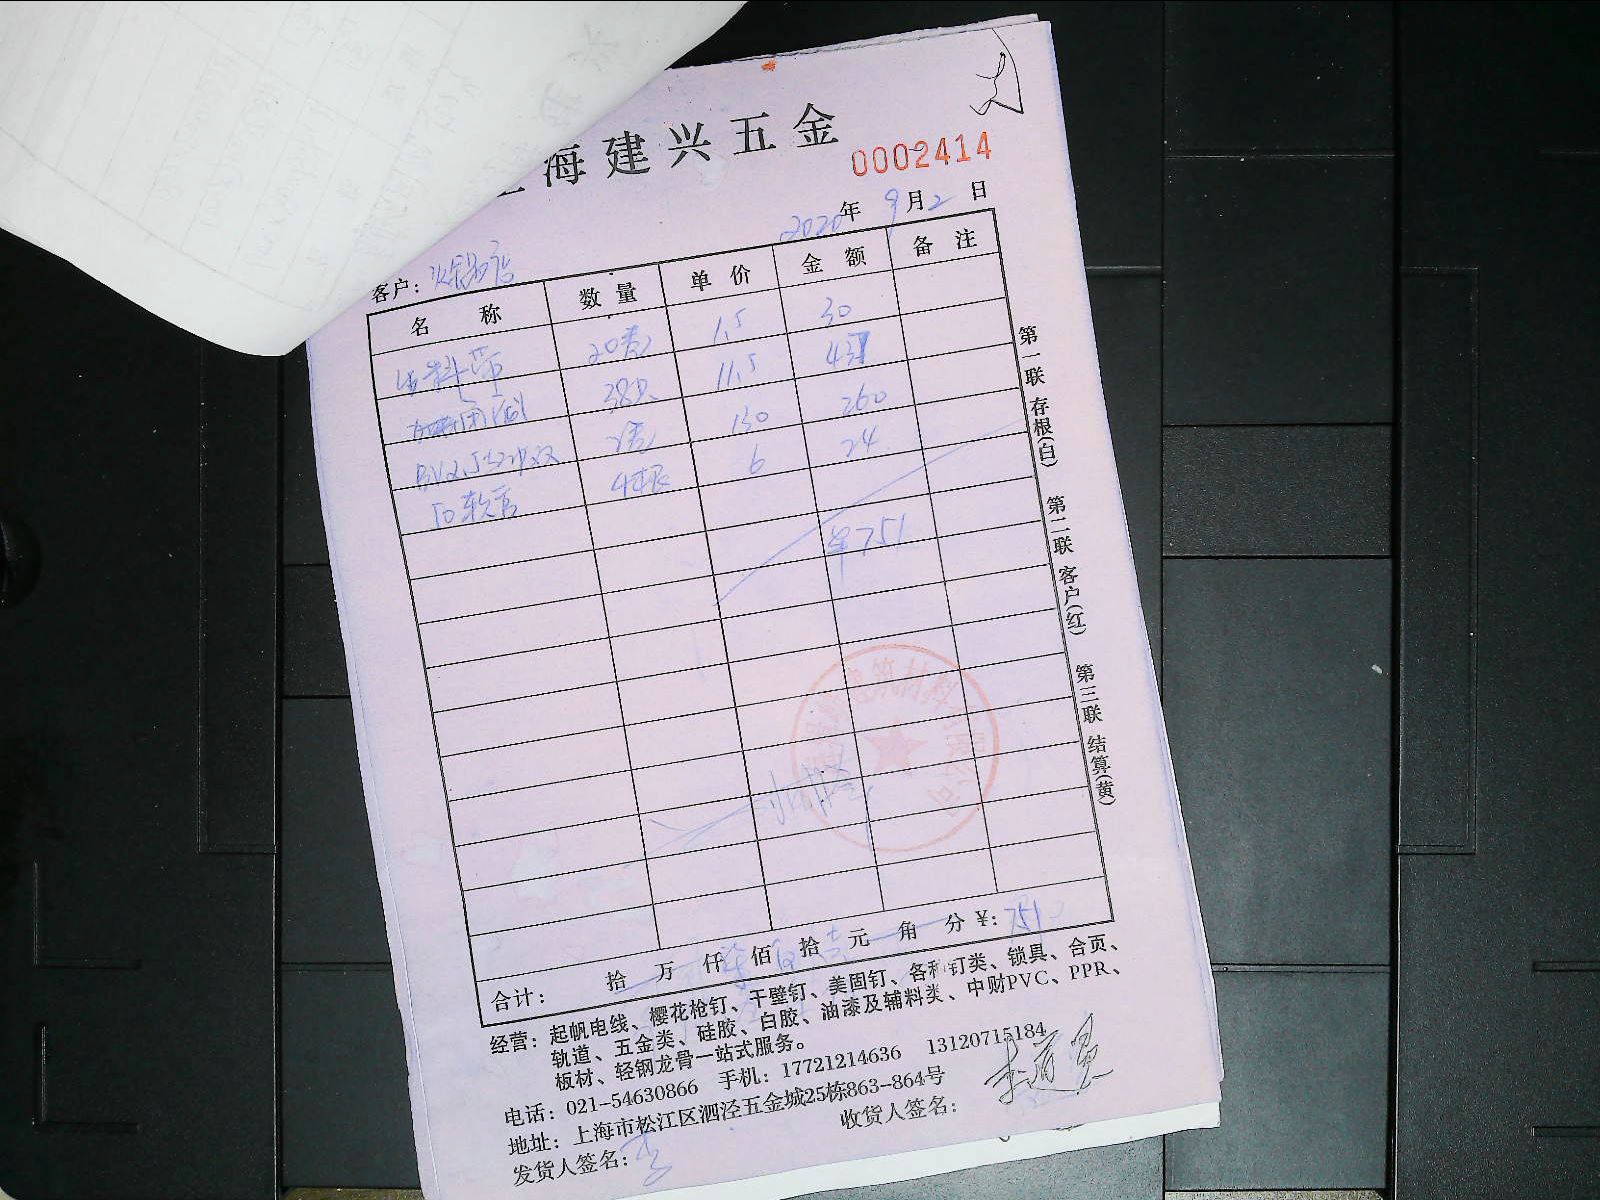 海建兴五金
0002414
2020年9月2日
客户：
名称 数量 单价 金额 备注
生料带 20卷 1.5 30
38只 11.5 437
BV2.5 2卷 130 260
50软管 4根 6 24
¥751
建筑材料有限公司
合计： 拾 万 仟 佰 拾 元 角 分 ¥：751
经营：起帆电线、樱花枪钉、干壁钉、美固钉、各种钉类、锁具、合页、
轨道、五金类、硅胶、白胶、油漆及辅料类、中财PVC、PPR、
板材、轻钢龙骨一站式服务。
电话：021-54630866 手机：17721214636 13120715184
地址：上海市松江区泗泾五金城25栋863-864号
发货人签名：李 收货人签名：
第一联 存根(白) 第二联 客户(红) 第三联 结算(黄)